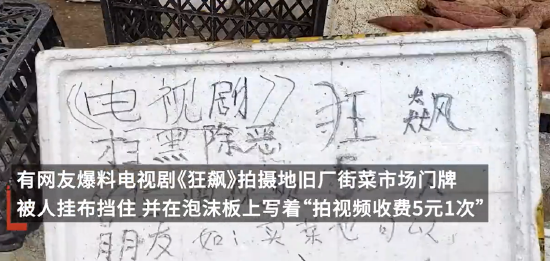 《电视剧》 狂飙
扫黑除恶
有网友爆料电视剧《狂飙》拍摄地旧厂街菜市场门牌
被人挂布挡住 并在泡沫板上写着“拍视频收费5元1次”
朋友 如：买菜也可以